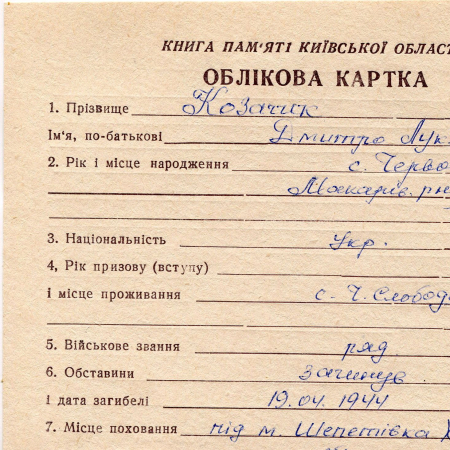 КНИГА ПАМ'ЯТІ КИЇВСЬКОЇ ОБЛАСТ
ОБЛІКОВА КАРТКА
1. Прізвище Козачик
Ім'я, по-батькові Дмитро Лук
2. Рік і місце народження с. Черво
Макарів. рн
3. Національність Укр.
4, Рік призову (вступу)
і місце проживання с. Ч. Слобода
5. Військове звання ряд
6. Обставини загинув.
і дата загибелі 19.04.1944
7. Місце поховання під м. Шепетівка